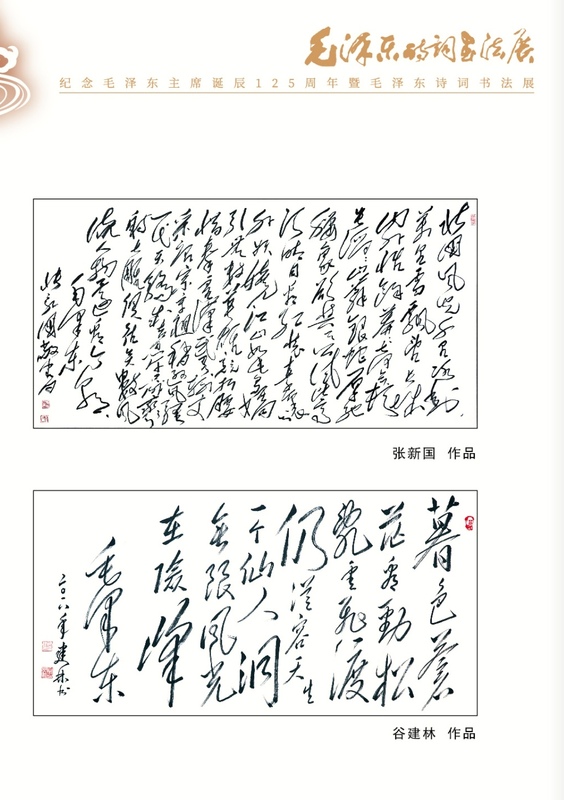 毛泽东诗词书法展
纪念毛泽东主席诞辰125周年暨毛泽东诗词书法展
北国风光千里冰封
万里雪飘望长城
内外惟余莽莽大河
上下顿失滔滔山舞银蛇原驰
蜡象欲与天公试比高
须晴日看红装素裹
分外妖娆江山如此多娇
引无数英雄竞折腰
惜秦皇汉武略输文
采唐宗宋祖稍逊风骚
一代天骄成吉思汗只识弯弓
射大雕俱往矣数风
流人物还看今朝
毛泽东
张新国敬书
张新国 作品
暮色苍
茫看劲松
乱云飞渡
仍从容天生
一个仙人洞
无限风光
在险峰
毛泽东
二〇一八年建林书
谷建林 作品